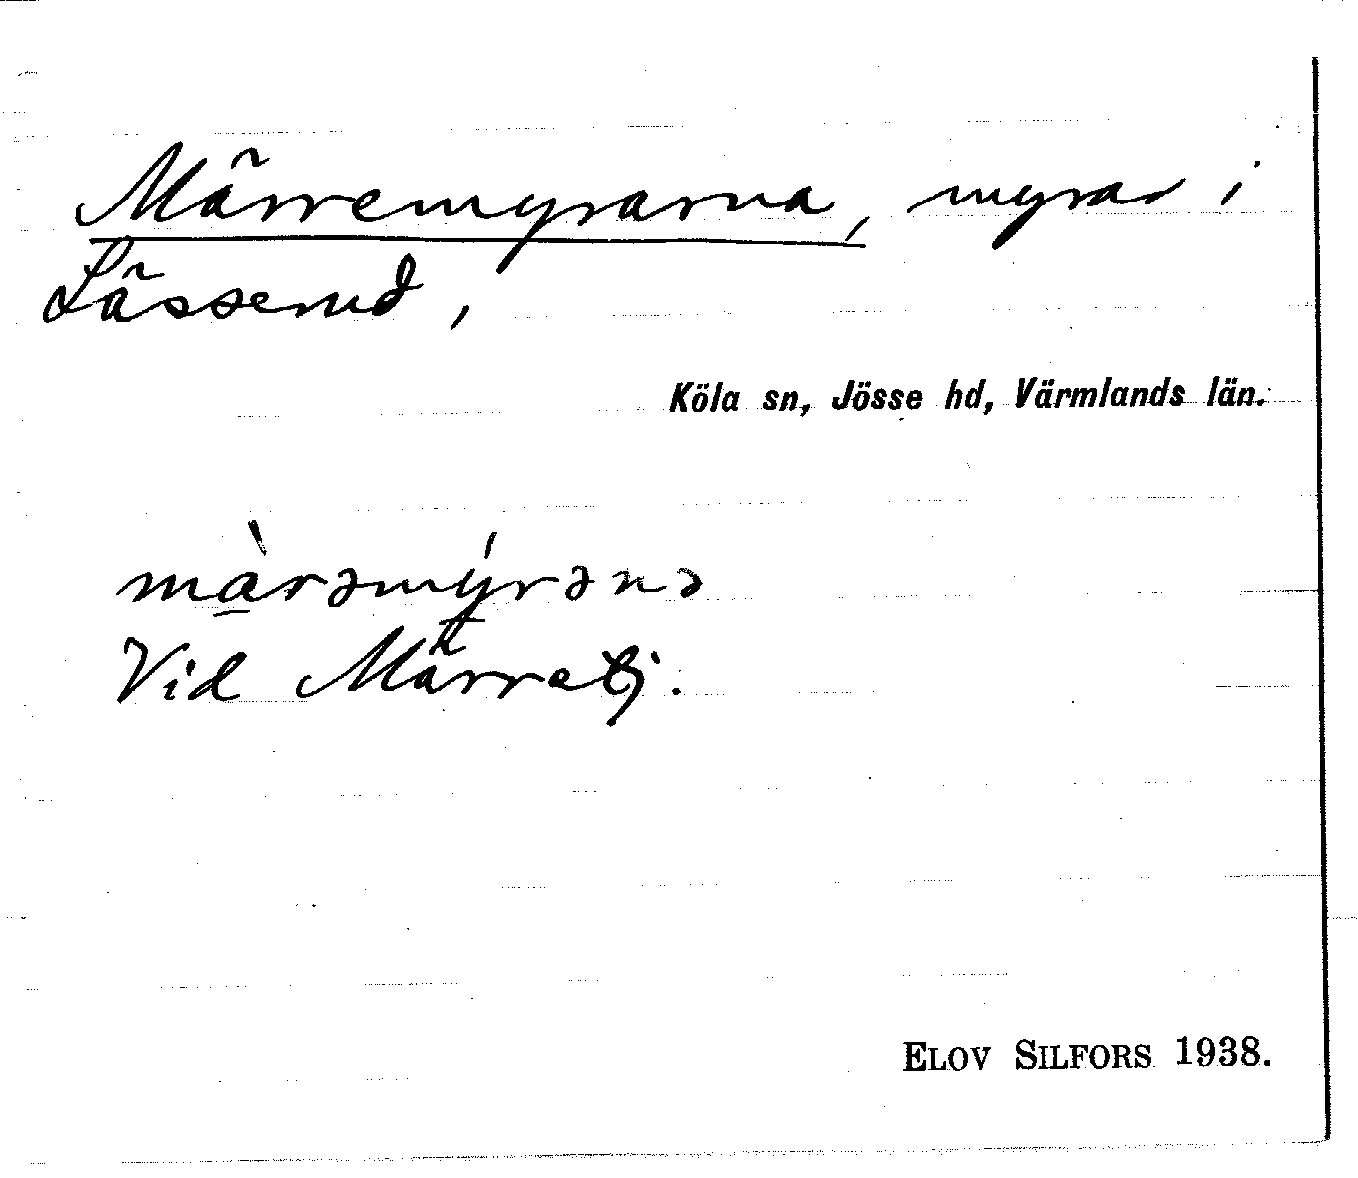 Märremyrarna, myrar i
Lässerud,
Köla sn, Jösse hd, Värmlands län.
mà̱rəmýrənə
Vid Märretj.
ELOV SILFORS 1938.